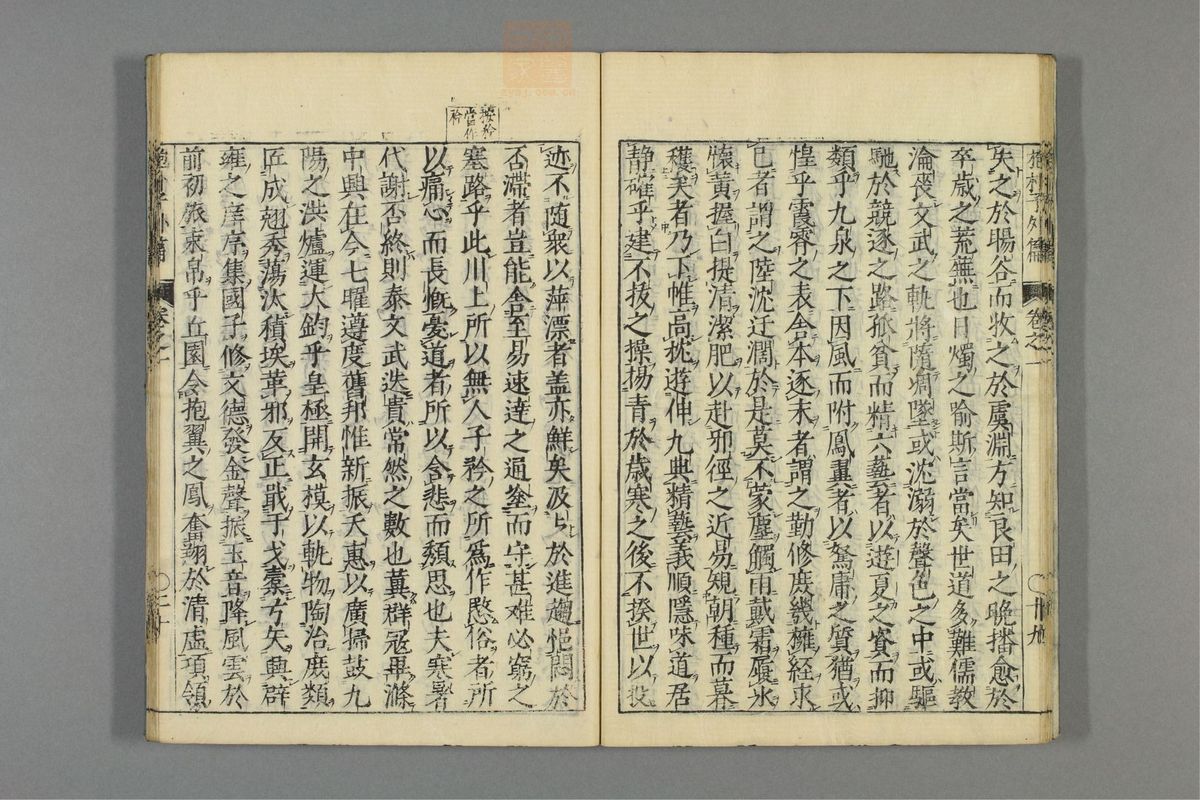 失之於暘谷而收之於虞淵方知良田之晚播愈於
卒歲之荒蕪也日燭之喻斯言當矣世道多難儒教
淪喪文武之軌將隨凋墜或沈溺於聲色之中或驅
馳於競逐之路孤貧而精六藝者以遊夏之資而抑
類乎九泉之下因風而附鳳翼者以駑庸之質猶或
惶乎霞霄之表舍本逐末者謂之勤修庶幾擁経求
己者謂之陸沈迂濶於是莫不蒙塵觸雨戴霜履氷
懷黄握白提清潔肥以赴邪徑之近易規朝種而暮
穫矣若乃下帷高枕遊伸九典精藝義順隱味道居
静確乎建不抜之操揚青於歳寒之後不揆世以投
抱朴子外篇
卷之一
廿九
按矜
當作
矜
迹不随衆以萍漂者盖亦鮮矣汲〻於進趨悒悶於
否滞者豈能舎至易速達之通塗而守甚难必窮之
塞路乎此川上所以無人子矜之所爲作愍俗者所
以痛心而長慨憂道者所以含悲而頽思也夫寒暑
代謝否終則泰文武迭貴常然之數也冀群冦畢滌
中興在今七曜遵度舊邦惟新振天惠以廣掃鼓九
陽之洪爐運大鈞乎皇極開玄模以軌物陶冶庶類
匠成翹秀蕩汰積埃革邪反正戢于戈櫜弓矢興辟
雍之庠序集國子修文德發金聲振玉音降風雲於
前初旅束帛乎丘園令抱翼之鳳奮翔於清虚項領
抱朴子外篇
卷之一
三十